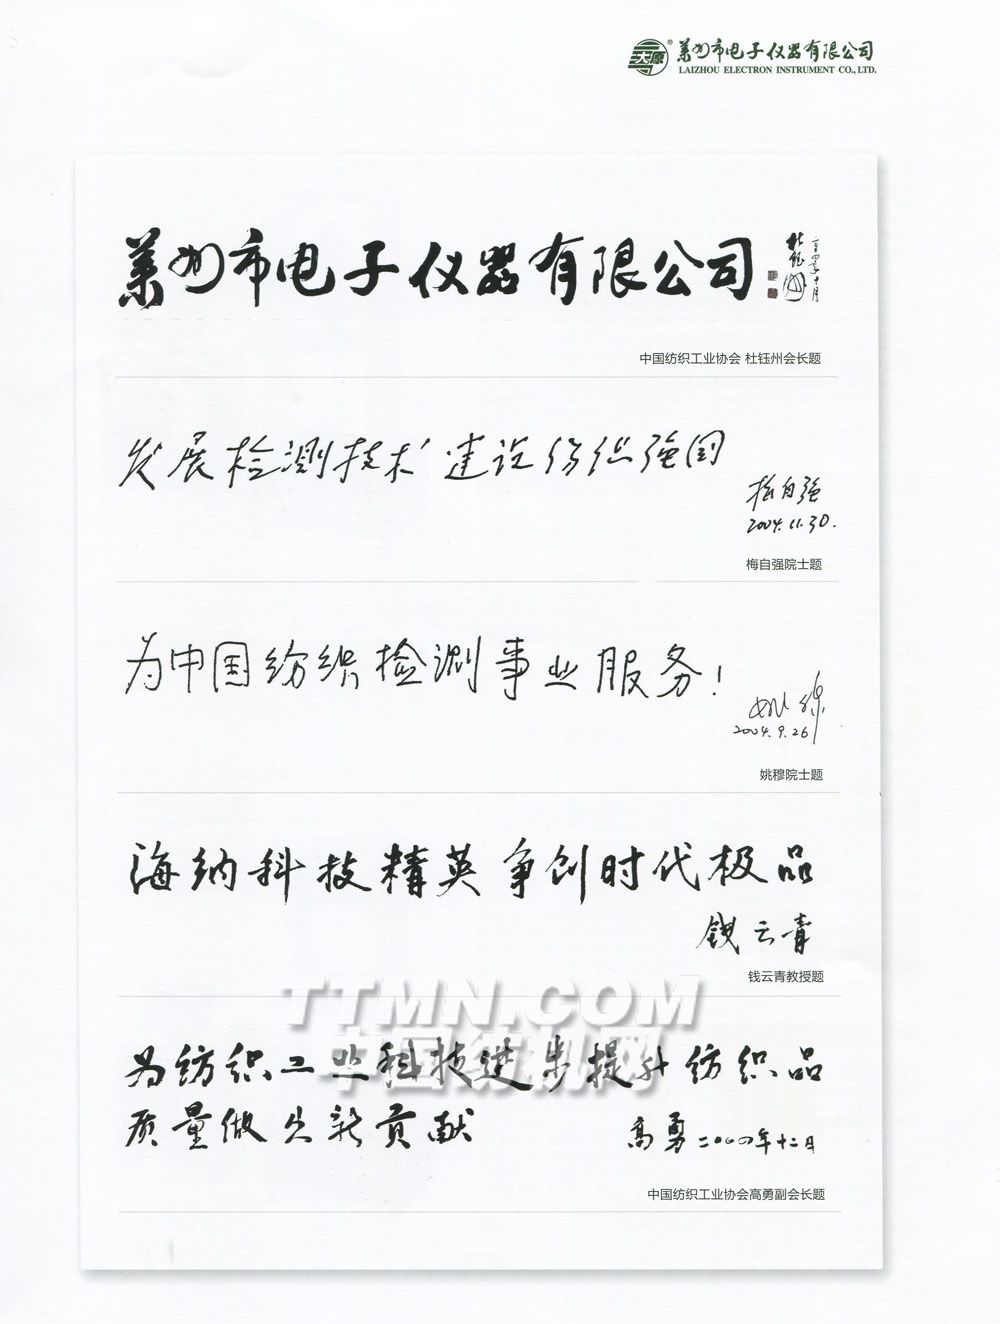 太原
莱州市电子仪器有限公司
LAIZHOU ELECTRON INSTRUMENT CO., LTD.
莱州市电子仪器有限公司
杜钰州
二〇〇四年十月
中国纺织工业协会 杜钰州会长题
发展检测技术 建设纺织强国
梅自强
2004.11.30.
梅自强院士题
为中国纺织检测事业服务!
姚穆
2004.9.26
姚穆院士题
海纳科技精英争创时代极品
钱云青
钱云青教授题
TTMN.COM
中国纺机网
为纺织工业科技进步提升纺织品
质量做出新贡献
高勇 二〇〇四年十二月
中国纺织工业协会高勇副会长题